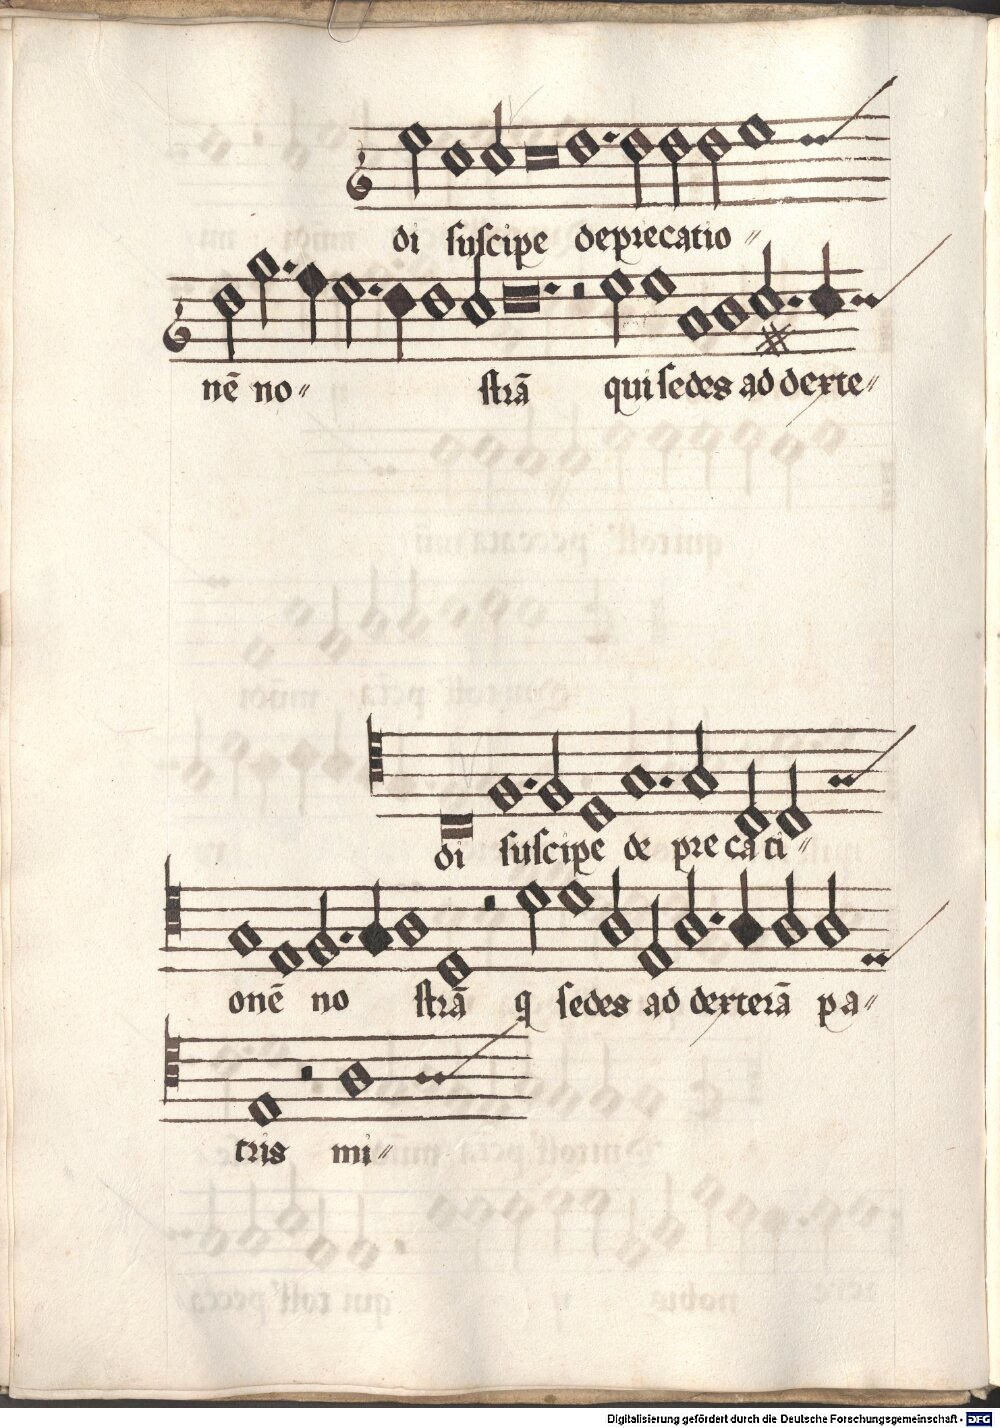 di suscipe deprecatio〃
nē no〃 strā qui sedes ad dexte〃
di suscipe de pre ca ti〃
onē no strā q sedes ad dexterā pa〃
tris mi〃
Digitalisierung gefördert durch die Deutsche Forschungsgemeinschaft - DFG